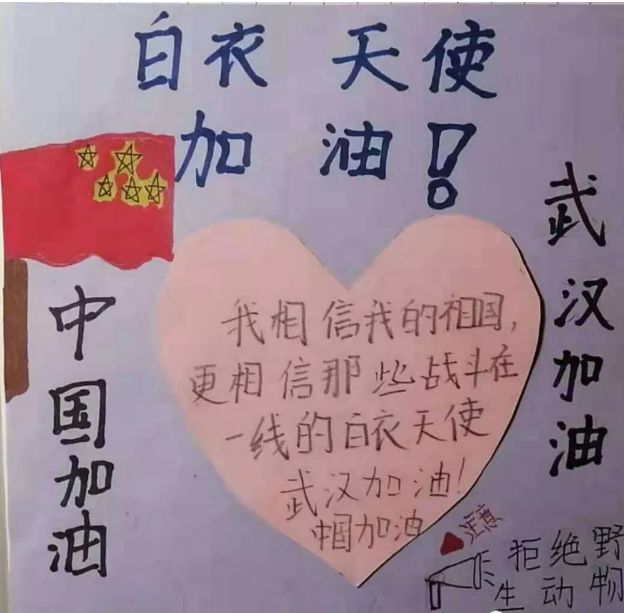 白衣天使
加油!
中国加油
我相信我的祖国,
更相信那些战斗在
一线的白衣天使
武汉加油!
中国加油
武汉加油
注意
拒绝野
生动物